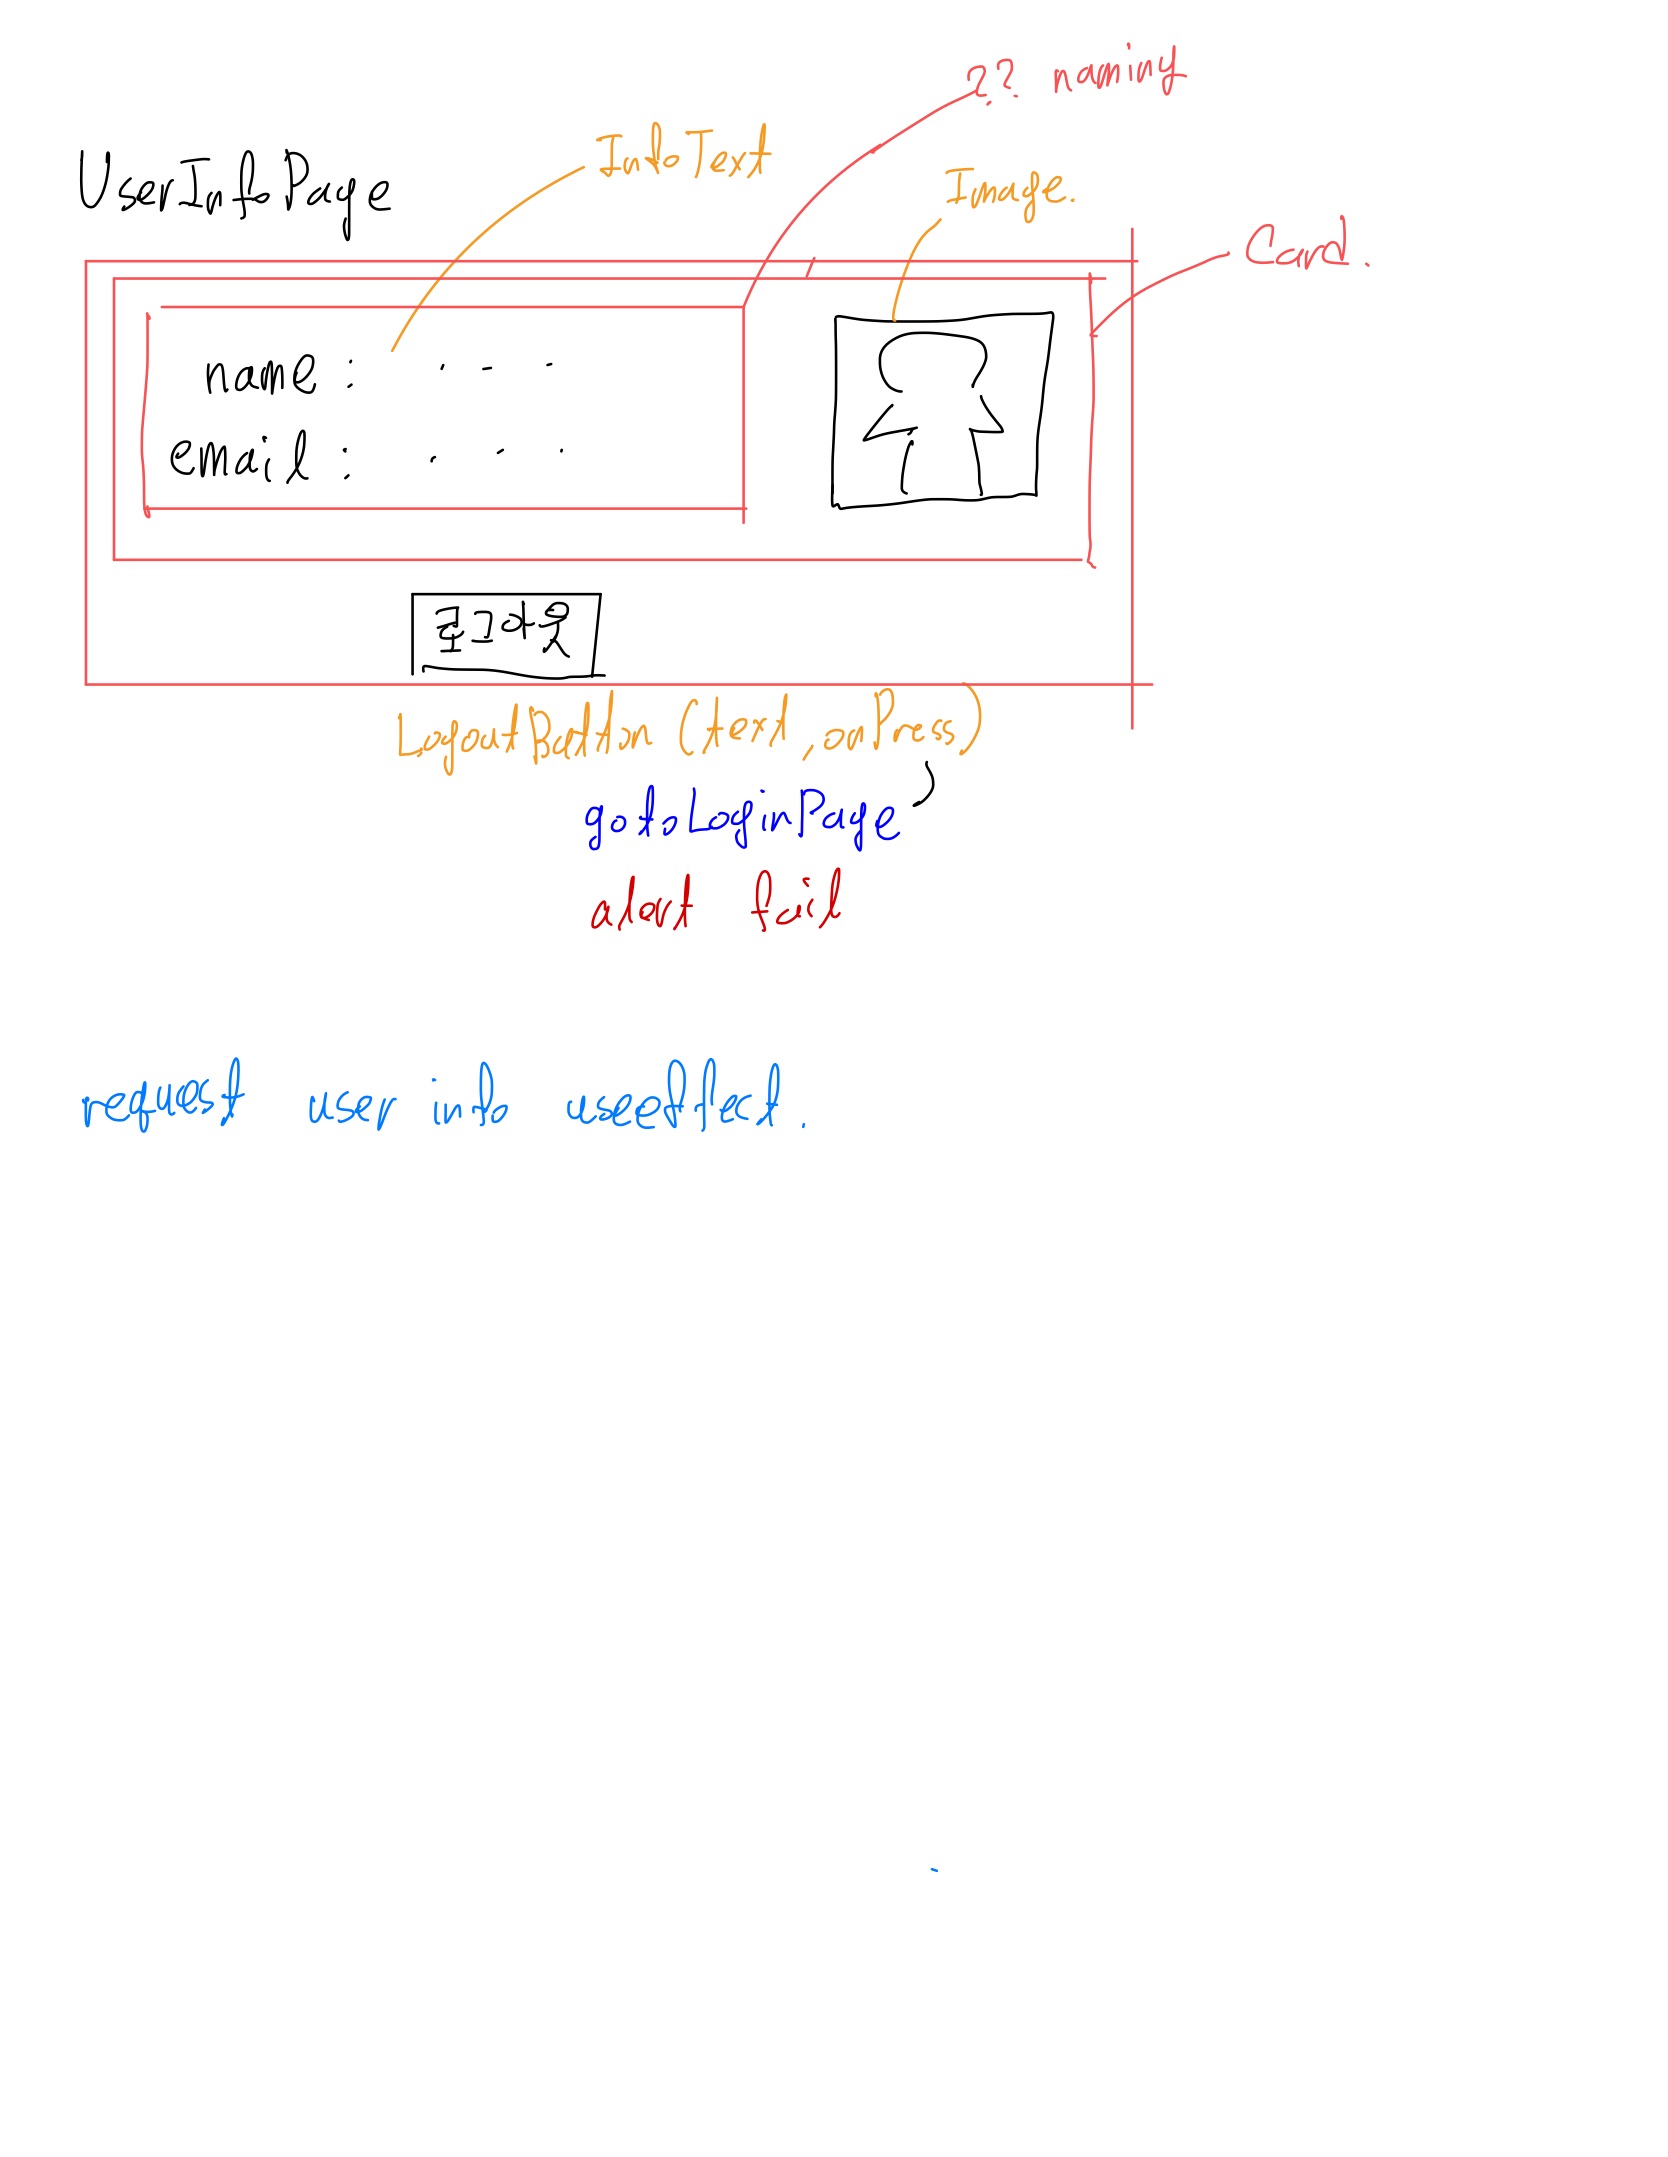 ?? naming
InfoText
UserInfoPage
Image.
Card.
name : . - -
email : . - .
로그아웃
LogoutButton (text, onPress)
gotoLoginPage
alert fail
request user info useeffect.